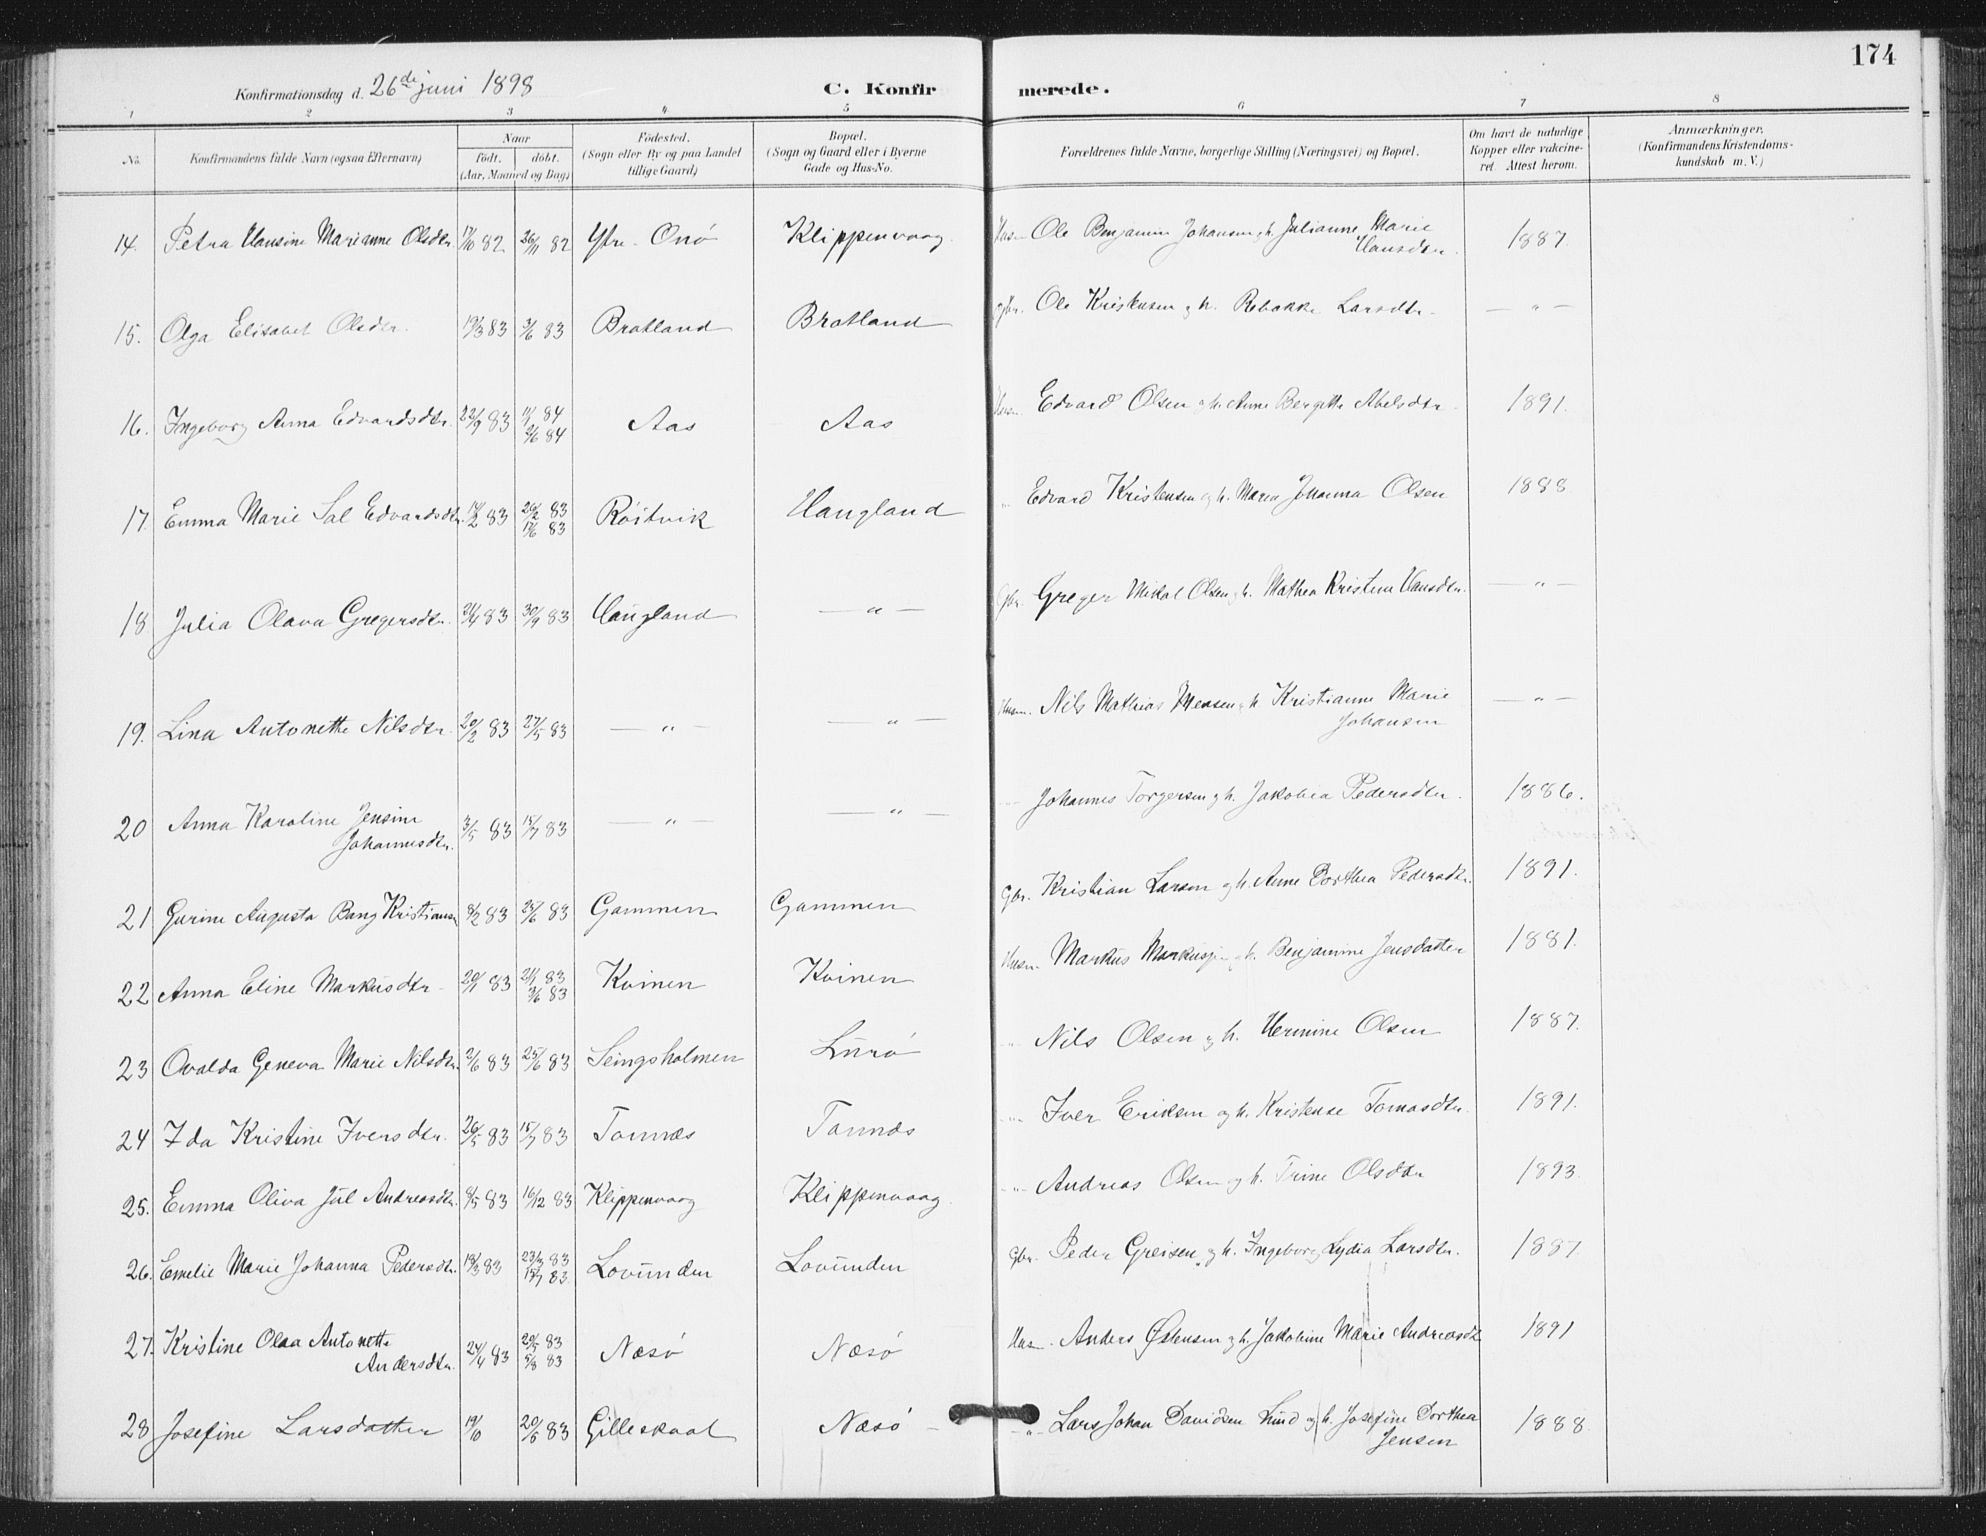 174
Konfirmationsdag d. 26de juni 1898 C. Konfirmerede.
1 2 3 4 5 6 7 8
No. Konfirmandens fulde Navn (ogsaa Efternavn) Naar født. døbt. (Aar, Maaned og Dag) Fødested. (Sogn eller By og paa Landet tillige Gaard) Bopæl. (Sogn og Gaard eller i Byerne Gade og Hus-No. Forældrenes fulde Navne, borgerlige Stilling (Næringsvei) og Bopæl. Om havt de naturlige Kopper eller vakcineret. Attest herom. Anmærkninger. (Konfirmandens Kristendomskundskab m. V.)
14. Petra Hansine Marianne Olsdtr. 17/10 82 26/11 82 Ytre-Onø Klippenvaag. Husm. Ole Benjamin Johansen og h. Julianne Marie Hansdtr. 1887.
15. Olga Elisabet Olsdtr. 19/3 83 3/6 83 Bratland Bratland Gbr. Ole Kristensen og h. Rebakka Larsdtr. — " —
16. Ingeborg Anna Edvardsdtr. 22/9 83 11/1 84 2/6 84 Aas Aas Husm. Edvard Olsen og h. Anne Bergitte Abelsdtr. 1891.
17. Emma Marie Sal Edvardsdtr. 14/2 83 26/2 83 17/6 83 Røstvik Haugland " Edvard Kristensen og h. Maren Johanna Olsen 1888
18 Julia Olava Gregersdtr. 21/4 83 30/9 83 Haugland — " — Gbr. Greger Mikal Olsen og h. Mathea Kristine Hansdtr. — " —
19. Lina Antonette Nilsdtr. 20/2 83 27/5 83 — " — — " — Husm. Nils Mathias Jensen og h. Kristianne Marie Johansen — " —
20 Anna Karoline Jensine Johannesdtr. 3/5 83 15/7 83 — " — — " — Johannes Torgersen og h. Jakobia Pedersdtr. 1886.
21 Gurine Augusta Bang Kristians 8/2 83 25/6 83 Gammen Gammen Gbr. Kristian Larsen og h. Anne Dorthea Pedersdtr. 1891.
22 Anna Eline Markusdtr. 20/1 83 21/1 83 3/6 83 Kvinen Kvinen Husm. Markus Markusen og h. Benjamine Jensdatter 1881.
23 Ovalda Geneva Marie Nilsdtr. 2/6 83 25/6 83 Seingsholmen Lurø " Nils Olsen og h. Hermine Olsen 1887.
24 Ida Kristine Iversdtr. 26/5 83 15/7 83 Tonnes Tonnes " Iver Eriksen og h. Kristense Tomasdtr. 1891.
25. Emma Oliva Jul Andreasdtr. 8/5 83 16/12 83 Klippenvaag Klippenvaag. " Andreas Olsen og h. Trine Olsdtr 1893
26. Emelie Marie Johanna Pedersdtr. 18/3 83 23/3 83 15/7 83 Lovunden Lovunden Gbr. Peder Greisen og h. Ingeborg Lydia Larsdtr. 1887
27. Kristine Olaa Antonette Andersdtr. 24/4 83 20/5 83 5/8 83 Næsø Næsø Husm. Anders Østensen og h. Jakobine Marie Andreasdt 1891
28 Josefine Larsdatter 19/10 20/6 83 Gilleskaal Næsø — " — Lars Johan Davidsen Lund og h. Josefine Dorthea Jensen 1888